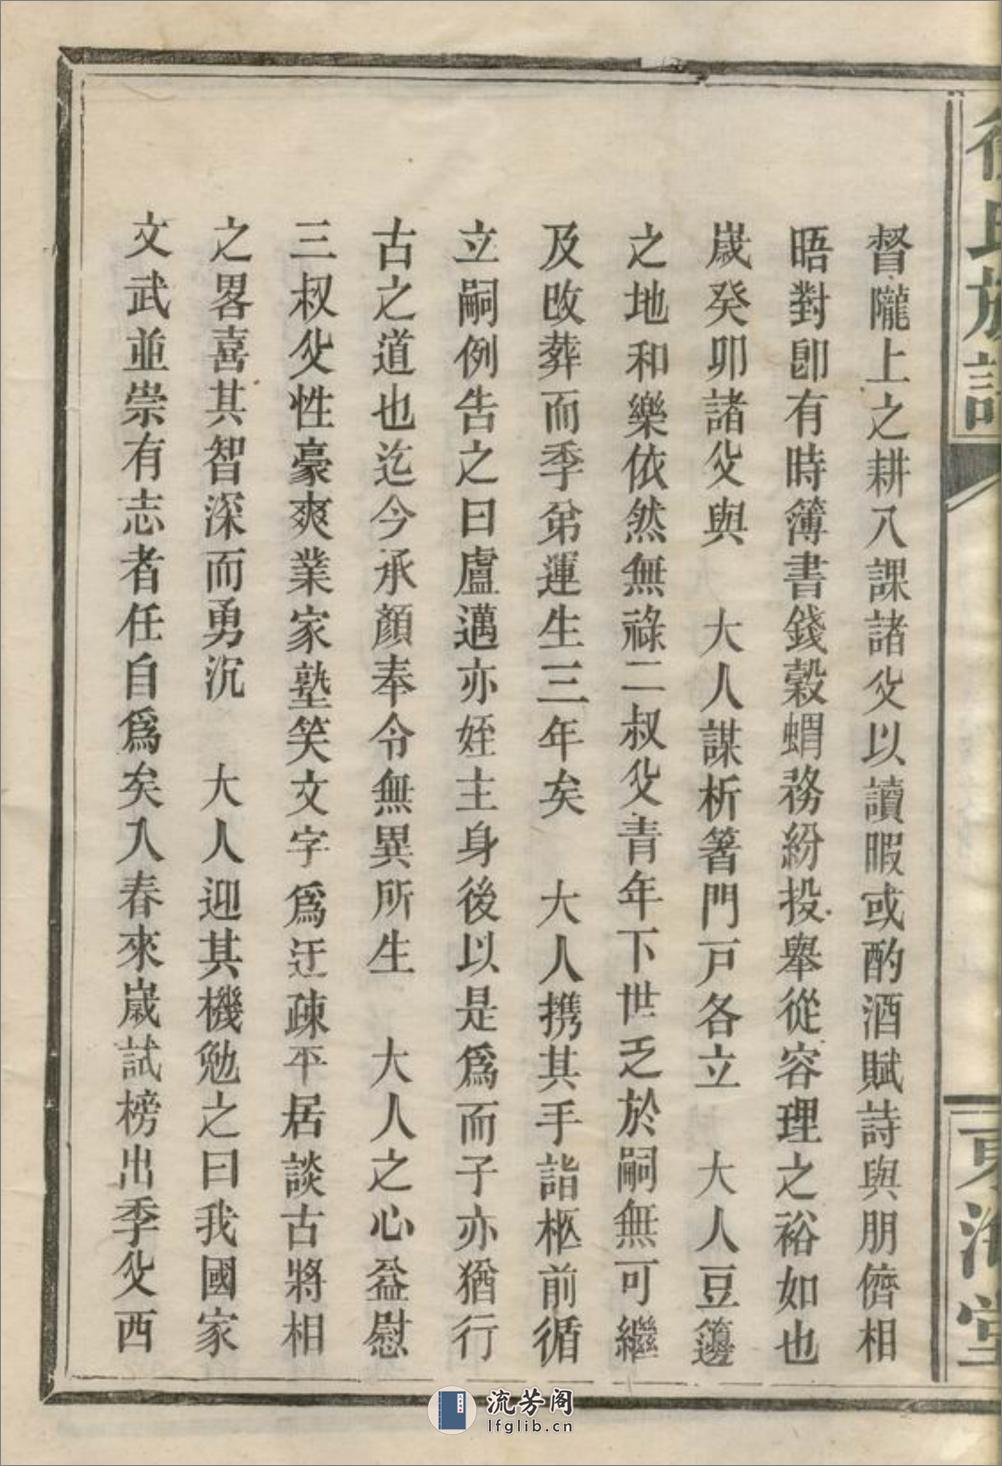 徐氏族譜
東海堂
督隴上之耕入課諸父以讀暇或酌酒賦詩與朋儕相
晤對卽有時簿書錢穀蝟務紛投舉從容理之裕如也
歲癸卯諸父與　大人謀析箸門戸各立　大人豆籩
之地和樂依然無祿二叔父青年下世乏於嗣無可繼
及改葬而季弟運生三年矣　大人携其手詣柩前循
立嗣例告之曰盧邁亦姪主身後以是爲而子亦猶行
古之道也迄今承顏奉令無異所生　大人之心益慰
三叔父性豪爽業家塾笑文字爲迂疎平居談古將相
之畧喜其智深而勇沉　大人迎其機勉之曰我國家
文武並崇有志者任自爲矣入春來歲試榜出季父西
流芳阁
lfglib.cn